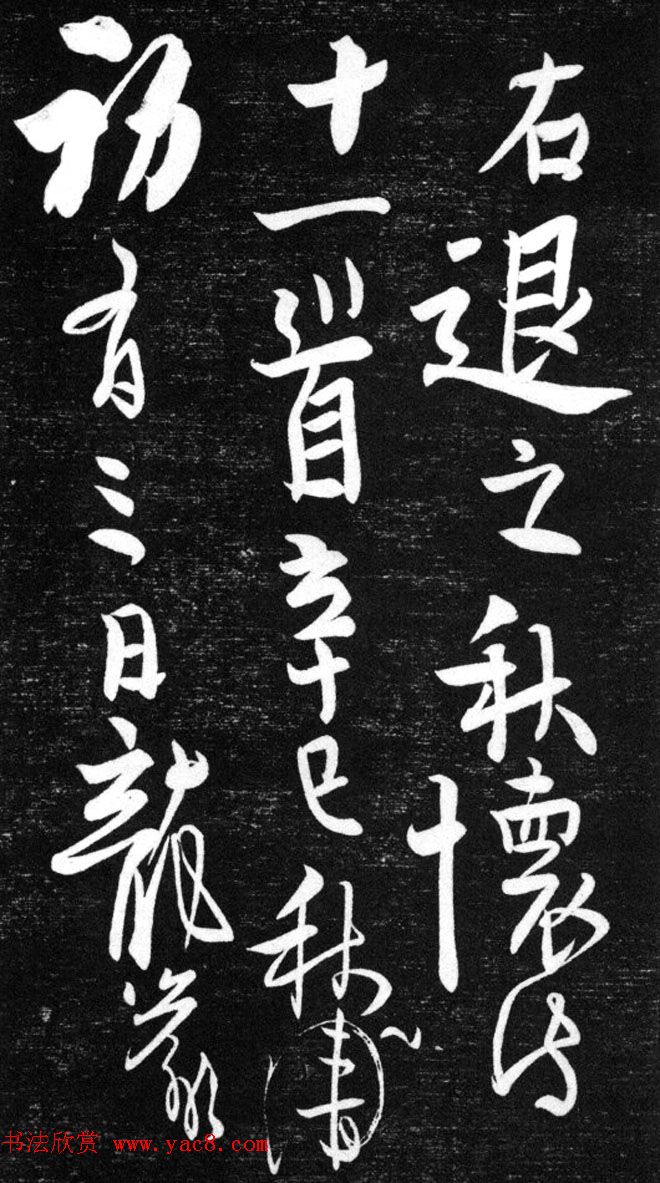 右退之秋懷詩
十一首辛巳秋
初有三日龍嚴
书法欣赏 www.yac8.com